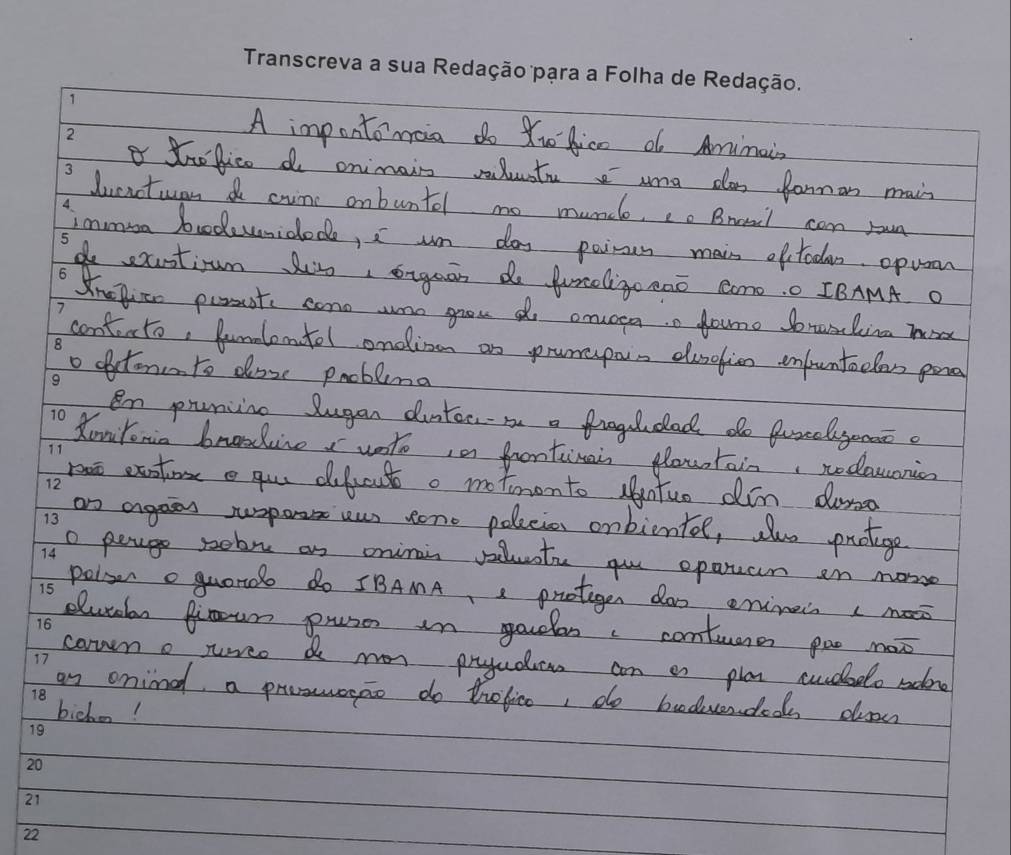 Transcreva a sua Redação para a Folha de Redação.
1
2 A importôncia do Tráfico de Animais
3 O Tráfico de animais silvestre é uma das formas mais
4 lucrativas de crime ambiental no mundo, e o Brasil com sua
5 imensa biodeversidade, é um dos paises mais afetados. apesar
6 de existirem leis, órgãos de fiscalização como .o IBAMA. O
7 Tráfico persiste como uma grave de ameaça .o fauna brasileira nesse
8 contexto, fundamental analisar as principais desafios enfrentados para
9 o
10 Em primeiro lugar destaca-se a fragilidade do fiscalização o
11 Territorio brasileiro é vasto, as fronteirais florestais, rodoviarios
12 não existisse o que deficuto o efetivo dim dosso
13 os orgãos como policia ambientol, eles protege
14 O perigo sobre os animais silvestre que aparecem em nosso
15 paises o guarda do IBAMA, e proteger dos animais e não
16 ficarem preso em gaiolas e que não
17 correm o risco de mas prejudicas com os plan cuidado sobre
18 os animal. a preservação do tráfico, do biodeversidade desses
19 bichos!
20
21
22